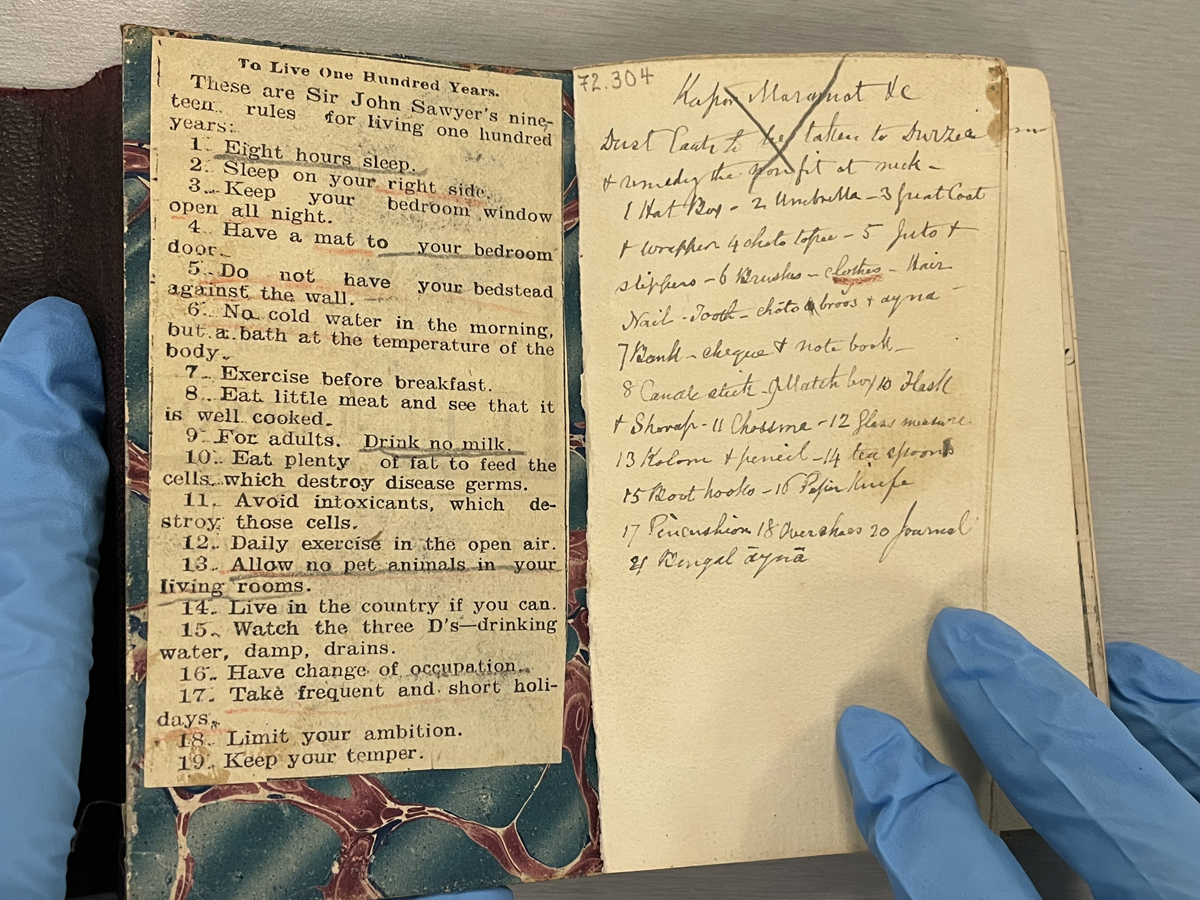 To Live One Hundred Years.
These are Sir John Sawyer's nine-
teen rules for living one hundred
years:
1. Eight hours sleep.
2. Sleep on your right side.
3. Keep your bedroom window
open all night.
4. Have a mat to your bedroom
door.
5. Do not have your bedstead
against the wall.
6. No cold water in the morning,
but a bath at the temperature of the
body.
7. Exercise before breakfast.
8. Eat little meat and see that it
is well cooked.
9. For adults. Drink no milk.
10. Eat plenty of fat to feed the
cells which destroy disease germs.
11. Avoid intoxicants, which de-
stroy those cells.
12. Daily exercise in the open air.
13. Allow no pet animals in your
living rooms.
14. Live in the country if you can.
15. Watch the three D's—drinking
water, damp, drains.
16. Have change of occupation.
17. Take frequent and short holi-
days.
18. Limit your ambition.
19. Keep your temper.
72.304
Kapor Maramot &c
Dust Coats to be taken to Durzee
& remedy the non fit at neck -
1 Hat Box - 2 Umbrella - 3 great Coat
& wrapper 4 choto topee - 5 Juto &
slippers - 6 Brushes - clothes - Hair
Nail - Tooth - choto broos & ayna -
7 Bank - cheque & note book -
8 Candle stick - 9 Match box 10 Flask
& Shorap - 11 Chossma - 12 Glass measure
13 Kolom & pencil - 14 tea spoon
15 Boot hooks - 16 Paper Knife
17 Pincushion 18 Overshoes 20 Journal
21 Bengal āynā